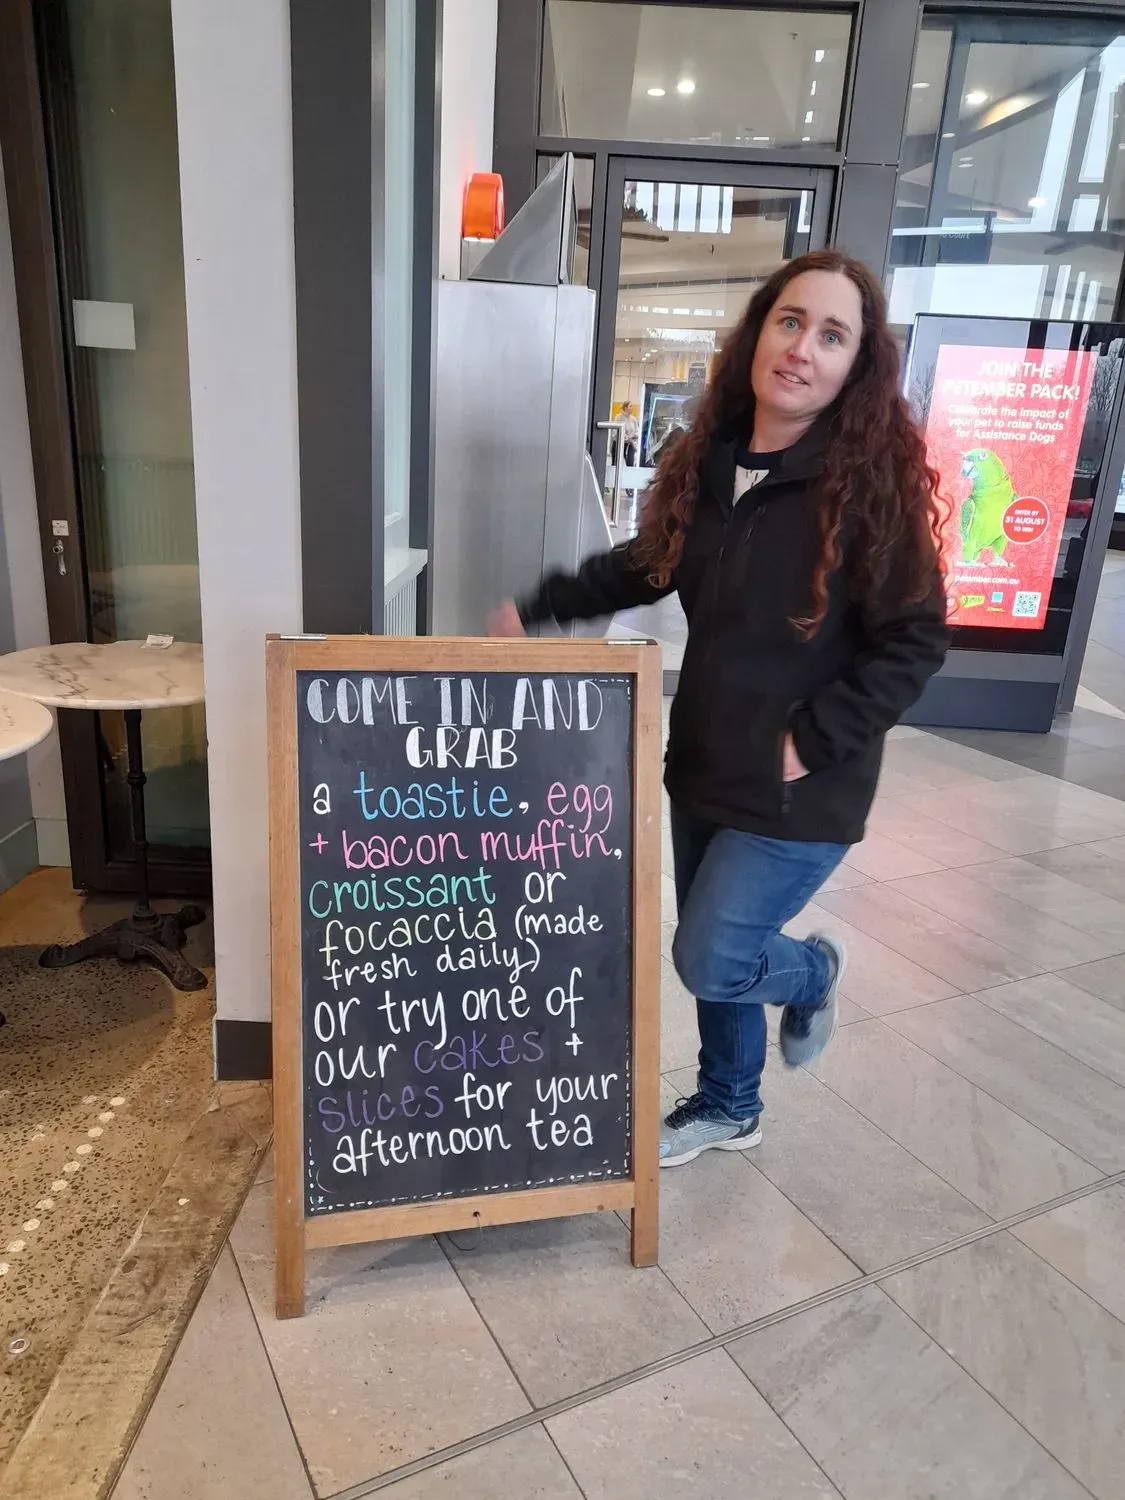 COME IN AND
GRAB
a toastie, egg
+ bacon muffin,
croissant or
focaccia (made
fresh daily)
or try one of
our cakes +
slices for your
afternoon tea
JOIN THE
PETEMBER PACK!
Celebrate the impact of
your pet to raise funds
for Assistance Dogs
ENTER BY
31 AUGUST
TO WIN
petember.com.au